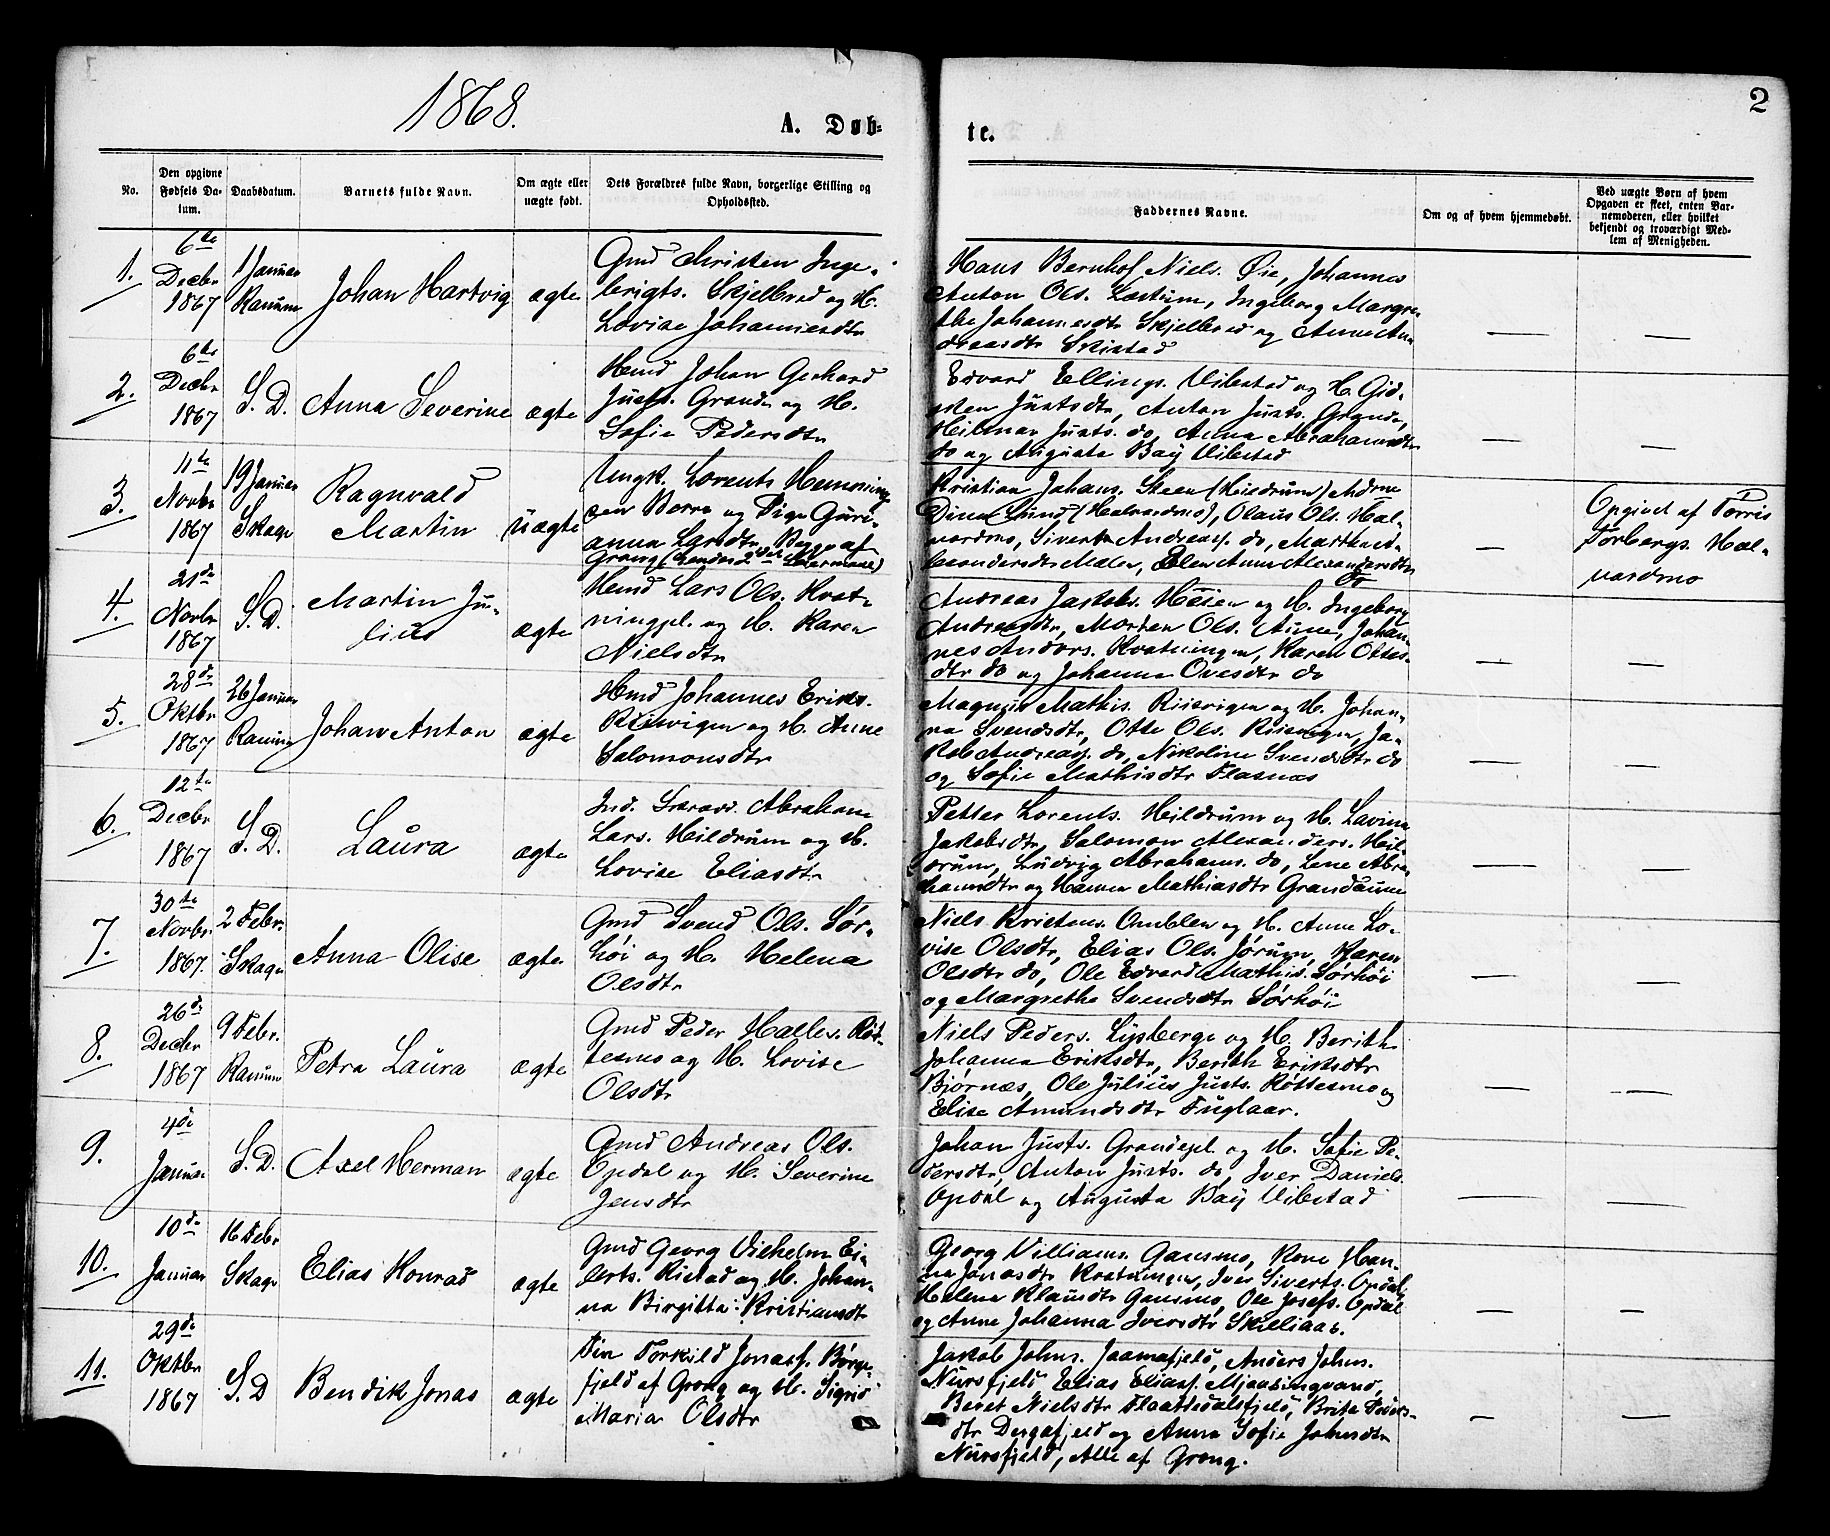 2
1868.
A. Døb-
te.
No.
Den opgivne
Fødsels Da-
tum.
Daabsdatum.
Barnets fulde Navn.
Om ægte eller
uægte født.
Dets Forældres fulde Navn, borgerlige Stilling og
Opholdssted.
Faddernes Navne.
Om og af hvem hjemmedøbt.
Ved uægte Børn af hvem
Opgaven er skeet, enten Bar-
nemoderen, eller hvilket
bekjendt og troværdigt Med-
lem af Menigheden.
1.
6te
Decbr
1867
1 Januar
Ranum
Johan Hartvig
ægte
Gmd Christen Inge-
brigts. Skjelbred og H.
Lovise Johannesdtr
Hans Bernhof Niels. Øie, Johannes
Anton Ols. Læstum, Ingeborg Margre-
the Johannesdtr Skjelbred og Anne An-
dreasdtr Skistad
—
—
2.
6te
Decbr
1867
S. D.
Anna Severine
ægte
Hmd Johan Gerhard
Justs. Grande og H.
Sofie Pedersdtr
Edvard Ellings. Vibstad og H. Gid-
sken Justsdtr, Anton Justs. Grande,
Hilmar Justs. do, Anna Abrahamsdtr
do og Augusta Baÿ Vibstad
—
—
3.
11te
Novbr
1867
19 Januar
Skage
Ragnvald
Martin
uægte
Ungk. Lorents Hemming-
sen Borre og Pige Guri-
anna Larsdtr, Begge af
Grong (hendes 2det Leiermaal)
Kristian Johans. Steen (Heildrum) Mdme
Dina Lund (Halvardmo), Olaus Ols. Hal-
vardmo, Sivert Andreass. do, Martha
Malen, Elen Anna Alexandersdtr
—
Opgivet af Torris
Torbergs. Hal-
vardmo
4.
21de
Novbr
1867
S. D.
Martin Ju-
lius
ægte
Hmd Lars Ols. Kvat-
ningpl. og H. Karen
Nielsdtr
Andreas Jakobs. Høien og H. Ingeborg
Andreasdtr, Morten Ols. Aune, Johan-
nes Anders. Kvatningen, Karen Ottes-
dtr do og Johanna Ovesdtr do
—
—
5.
28de
Oktbr
1867
26 Januar
Ranum
Johan Anton
ægte
Hmd Johannes Eriks.
Riisvigen og H. Anne
Salomonsdtr
Magnus Mathis. Riisvigen og H. Johan-
na Svendsdtr, Otte Ols. Riisvigen, Ja-
kob Andreass. do, Nikoline Svendsdtr do
og Sofie Mathisdtr Flasnæs
—
—
6.
12te
Decbr
1867
S. D.
Laura
ægte
Ind. Abraham
Lars. Heildrum og H.
Lovise Eliasdtr
Petter Lorents. Heildrum og H. Lavina
Jakobsdtr, Salomon Alexanders. Heil-
drum, Ludvig Abrahams. do, Lene Abra-
hamsdtr og Hanna Mathiasdtr Grandaune
—
—
7.
30te
Novbr.
1867.
2 Febr.
Skage
Anna Olise
ægte
Gmd Svend Ols. Sør-
høi og H. Helena
Olsdtr
Niels Kristens. Omblen og H. Anne Lo-
vise Olsdtr, Elias Ols. Jørum, Karen
Olsdtr do, Ole Edvard Mathis. Sørhøi
og Margrethe Svendsdtr Sørhøi
—
—
8.
26de
Decbr
1867
9 Febr.
Ranum
Petra Laura
ægte
Gmd Peder Halles. Røt-
tesmo og H. Lovise
Olsdtr
Niels Peders. Lysberge og H. Berith
Johanna Eriksdtr, Berith Eriksdtr
Bjørnæs, Ole Julius Justs. Røttesmo og
Elise Amundsdtr Fuglaar.
—
—
9.
4de
Januar
S. D.
Axel Herman
ægte
Gmd Andreas Ols.
Opdal og H. Severine
Jensdtr
Johan Justs. Grandepl. og H. Sofie Pe-
dersdtr, Anton Justs. do, Iver Daniels.
Opdal og Augusta Baÿ Vibstad
—
—
10.
10de
Januar
16 Febr
Skage
Elias Konrad
ægte
Gmd Georg Vilhelm Ei-
lerts. Ristad og H. Johan-
na Birgitta Kristiansdtr
Georg Villiams. Gansmo, Kone Han-
na Jonasdtr Kvatningen, Iver Siverts. Opdal,
Helena Klausdtr Gansmo, Ole Josefs. Opdal
og Anne Johanna Iversdtr Skilliaas.
—
—
11.
29de
Oktbr
1867
S. D
Bendik Jonas
ægte
Fin Torkild Jonass. Børge-
fjeld af Grong og H. Sigrid
Maria Olsdtr
Jakob Johns. Jaamafjeld, Anders Johns.
Nursfjeld Elias Eliass. Mjøusingvand,
Beret Nielsdtr Flaattedalsfjeld, Brita Peders-
dtr Dergafjeld og Anna Sofie Johnsdtr
Nursfjeld, Alle af Grong.
—
—